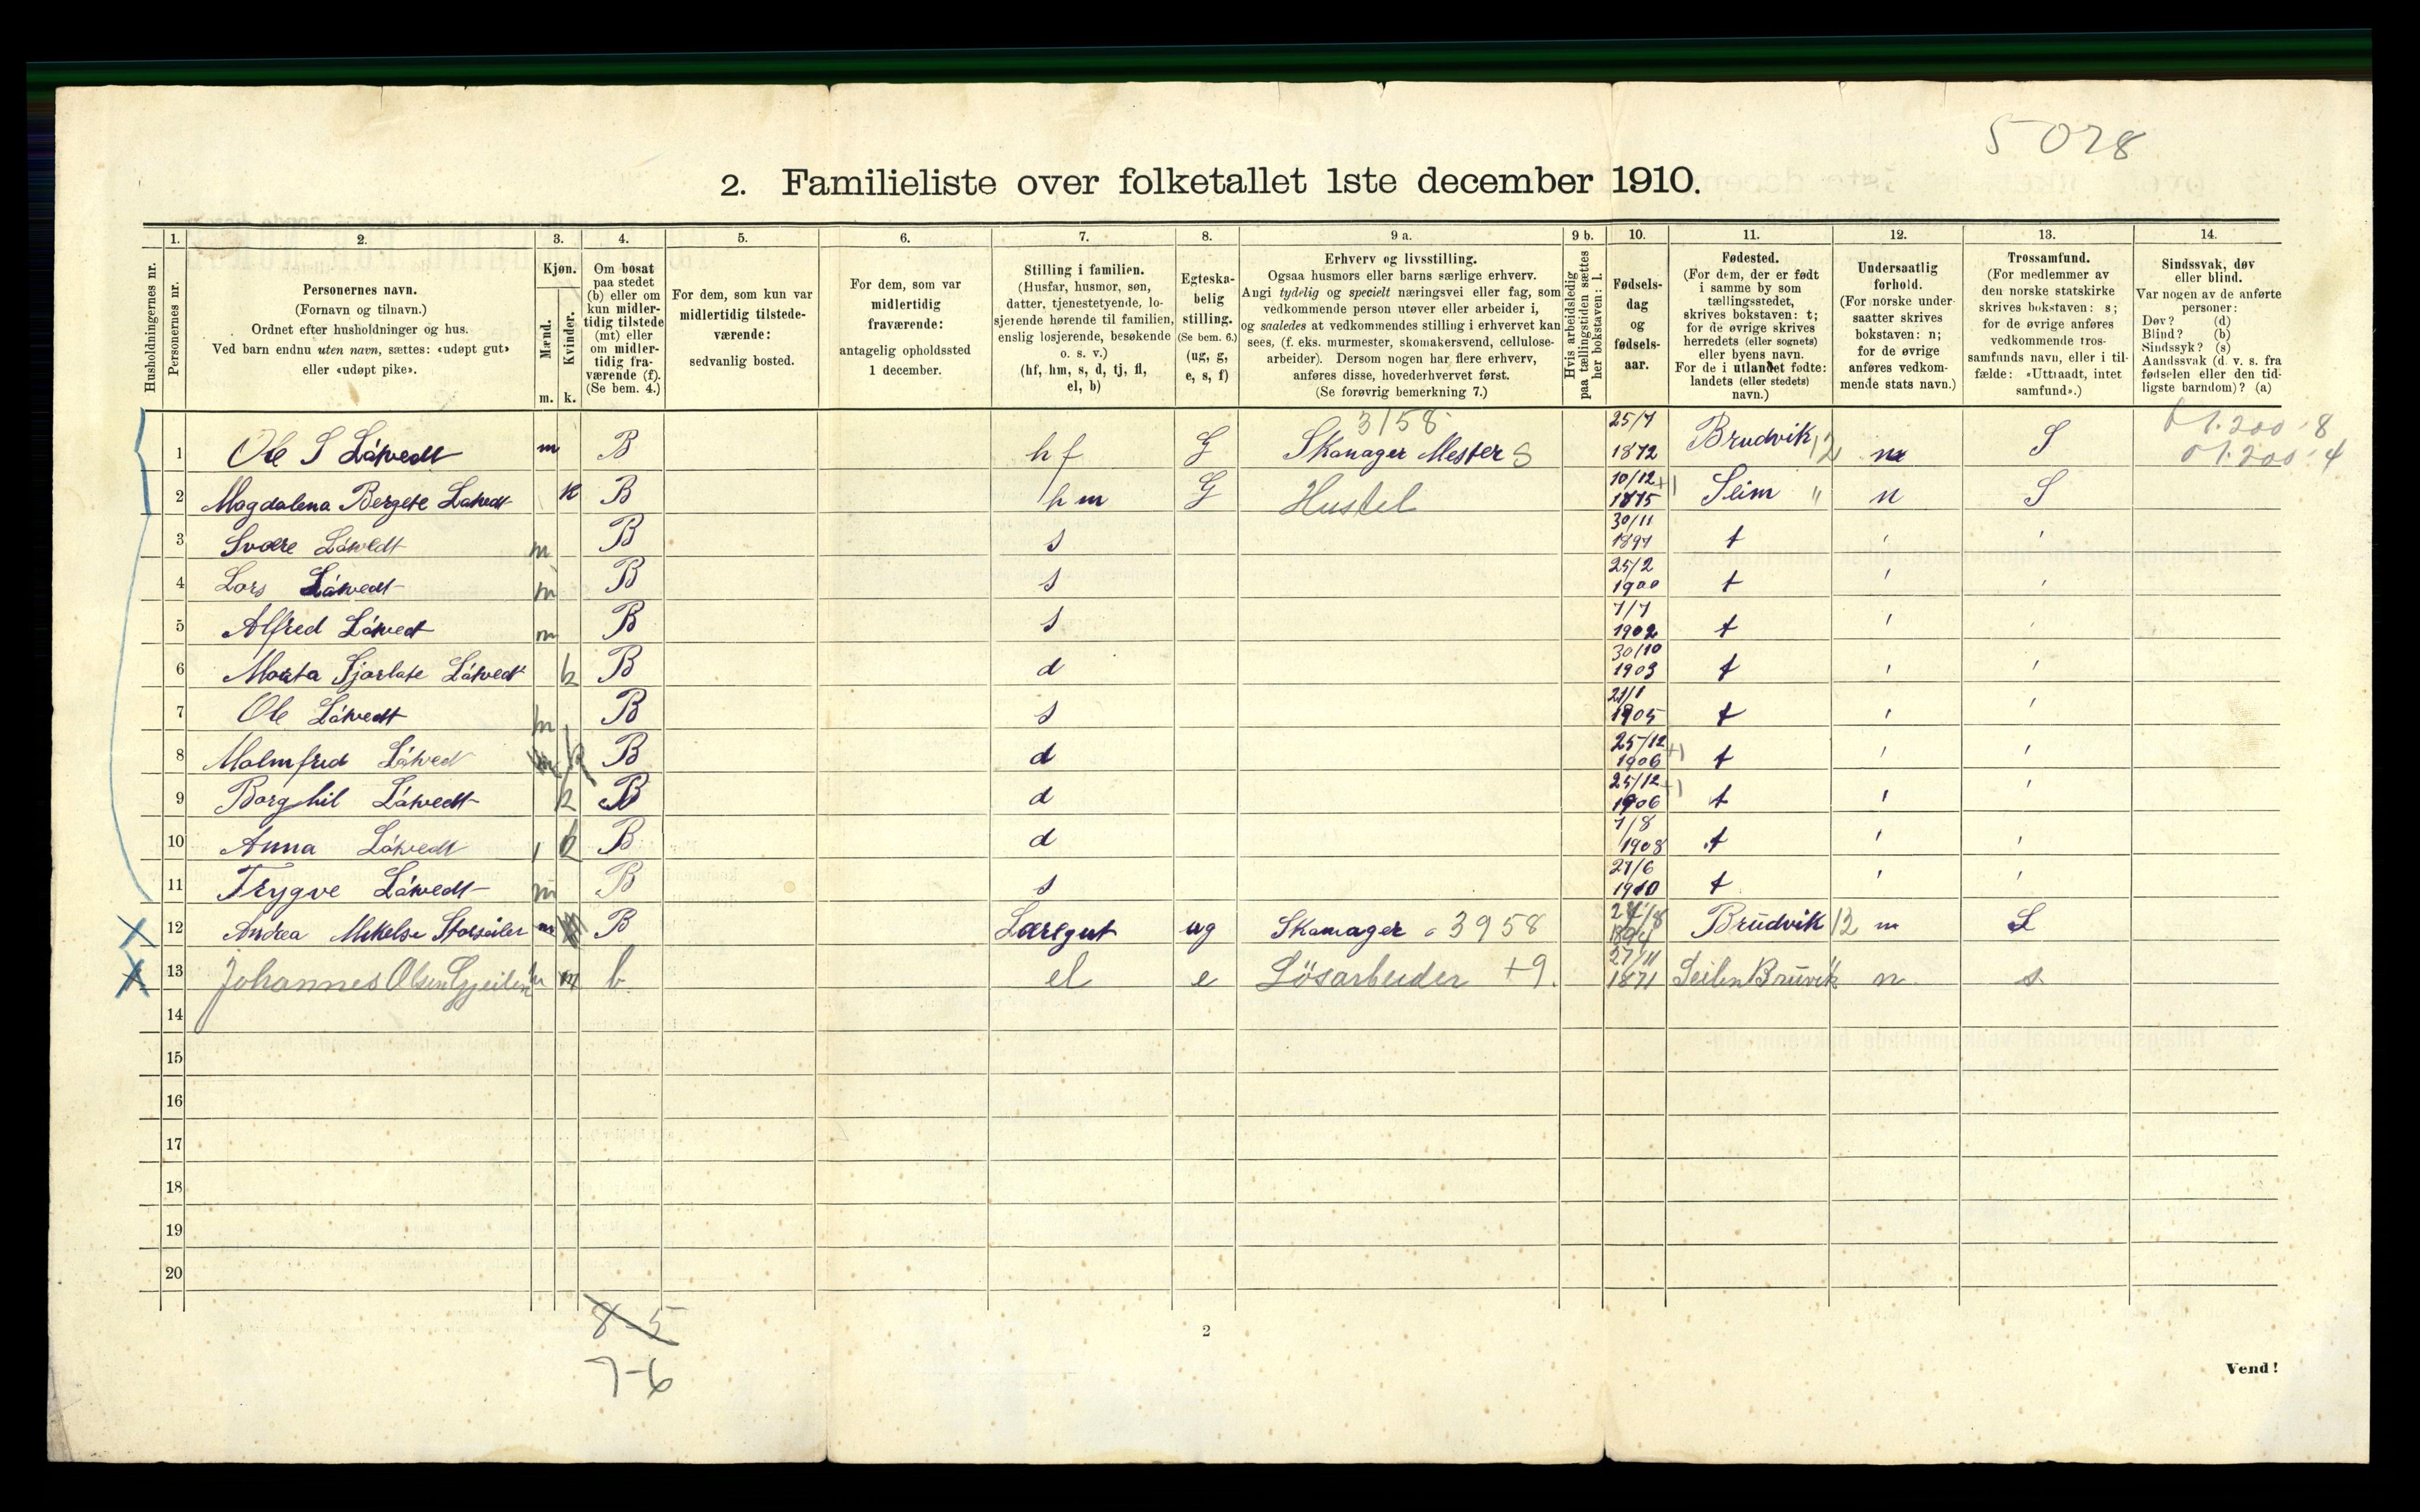 5028
2. Familieliste over folketallet 1ste december 1910.
Husholdningernes nr.
1.
Personernes nr.
2.
Personernes navn.
(Fornavn og tilnavn.)
Ordnet efter husholdninger og hus.
Ved barn endnu uten navn, sættes: «udøpt gut»
eller «udøpt pike».
3.
Kjøn.
Mænd.
Kvinder.
m. k.
4.
Om bosat
paa stedet
(b) eller om
kun midler-
tidig tilstede
(mt) eller
om midler-
tidig fra-
værende (f).
(Se bem. 4.)
5.
For dem, som kun var
midlertidig tilstede-
værende:
sedvanlig bosted.
6.
For dem, som var
midlertidig
fraværende:
antagelig opholdssted
1 december.
7.
Stilling i familien.
(Husfar, husmor, søn,
datter, tjenestetyende, lo-
sjerende hørende til familien,
enslig losjerende, besøkende
o. s. v.)
(hf, hm, s, d, tj, fl,
el, b)
8.
Egteska-
belig
stilling.
(Se bem. 6.)
(ug, g,
e, s, f)
9 a.
Erhverv og livsstilling.
Ogsaa husmors eller barns særlige erhverv.
Angi tydelig og specielt næringsvei eller fag, som
vedkommende person utøver eller arbeider i,
og saaledes at vedkommendes stilling i erhvervet kan
sees, (f. eks. murmester, skomakersvend, cellulose-
arbeider). Dersom nogen har flere erhverv,
anføres disse, hovederhvervet først.
(Se forøvrig bemerkning 7.)
9 b.
Hvis arbeidsledig
paa tællingstiden sættes
her bokstaven: l.
10.
Fødsels-
dag
og
fødsels-
aar.
11.
Fødested.
(For dem, der er født
i samme by som
tællingsstedet,
skrives bokstaven: t;
for de øvrige skrives
herredets (eller sognets)
eller byens navn.
For de i utlandet fødte:
landets (eller stedets)
navn.)
12.
Undersaatlig
forhold.
(For norske under-
saatter skrives
bokstaven: n;
for de øvrige
anføres vedkom-
mende stats navn.)
13.
Trossamfund.
(For medlemmer av
den norske statskirke
skrives bokstaven: s;
for de øvrige anføres
vedkommende tros-
samfunds navn, eller i til-
fælde: «Uttraadt, intet
samfund».)
14.
Sindssvak, døv
eller blind.
Var nogen av de anførte
personer:
Døv? (d)
Blind? (b)
Sindssyk? (s)
Aandssvak (d. v. s. fra
fødselen eller den tid-
ligste barndom)? (a)
3158
1 Ole S Låtvedt m B hf G Skomager Mester S 25/7 1872 Brudvik 12 n S
2 Magdalena Bergete Låtvedt k B hm G Hustel 10/12 1875 +1 Seim " n S
3 Sverre Låtvedt m B s 30/11 1897 t ' '
4 Lars Låtvedt m B s 25/2 1900 t ' '
5 Alfred Låtvedt m B s 7/7 1902 t ' '
6 Marta Sjarlate Låtvedt k B d 30/10 1903 t ' '
7 Ole Låtvedt m B s 21/1 1905 t ' '
8 Malmfred Låtved k B d 25/12 1906 +1 t ' '
9 Borghil Låtvedt k B d 25/12 1906 +1 t ' '
10 Anna Låtvedt k B d 7/8 1908 t ' '
11 Trygve Låtvedt m B s 27/6 1910 t ' '
12 Andrea Mikelse Storseiler m B Læregut ug Skomager 3958 1894 Brudvik 12 n S
13 Johannes Olsen m b el e Lösarbeider +9. 27/11 1871 Seilen Bruvik n s
14
15
16
17
18
19
20
8-5
7-6
2
Vend!